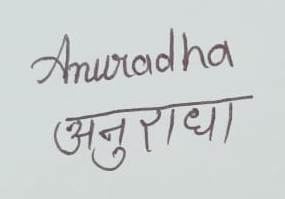 Anuradha
अनुराधा